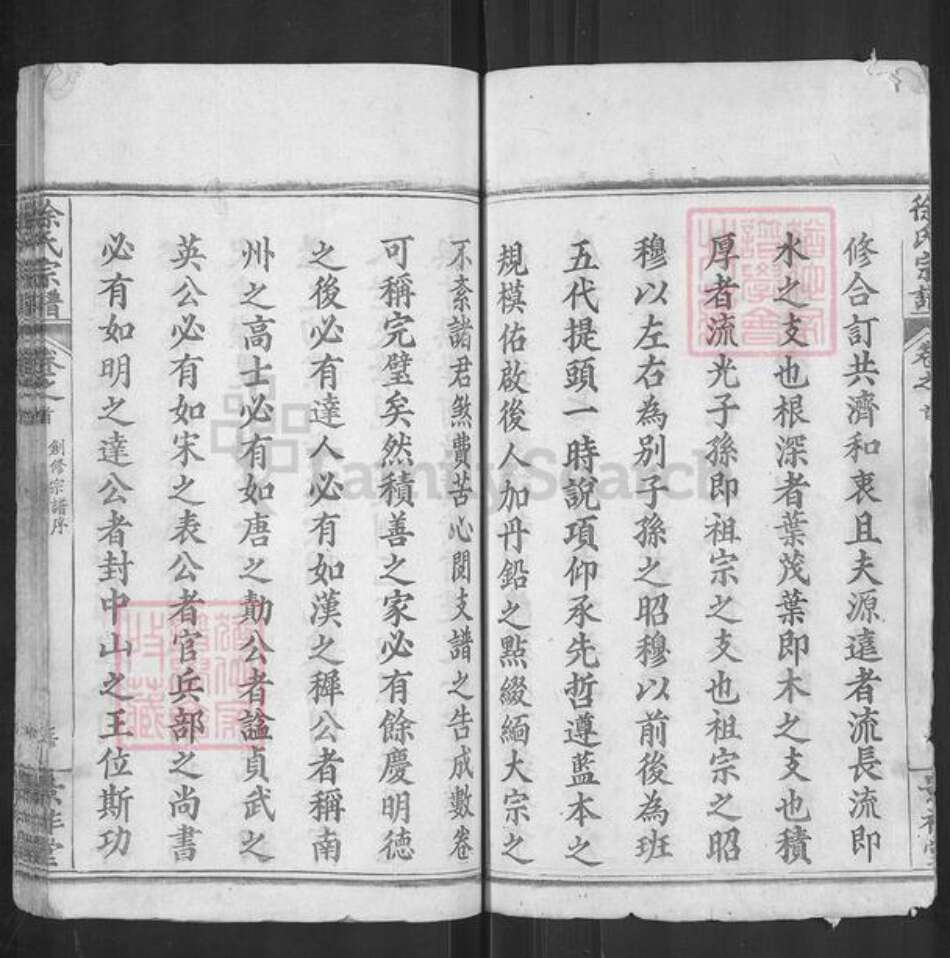 修合訂共濟和衷且夫源遠者流長流即
水之支也根深者葉茂葉即木之支也積
厚者流光子孫即祖宗之支也祖宗之昭
穆以左右為別子孫之昭穆以前後為班
五代提頭一時說項仰承先哲遵藍本之
規模佑啟後人加丹鉛之點綴緬大宗之
不紊諸君煞費苦心閱支譜之告成數卷
可稱完璧矣然積善之家必有餘慶明德
之後必有達人必有如漢之穉公者稱南
州之高士必有如唐之勣公者諡貞武之
英公必有如宋之表公者官兵部之尚書
必有如明之達公者封中山之王位斯功
徐氏宗譜
卷之首
創修宗譜序
FamilySearch